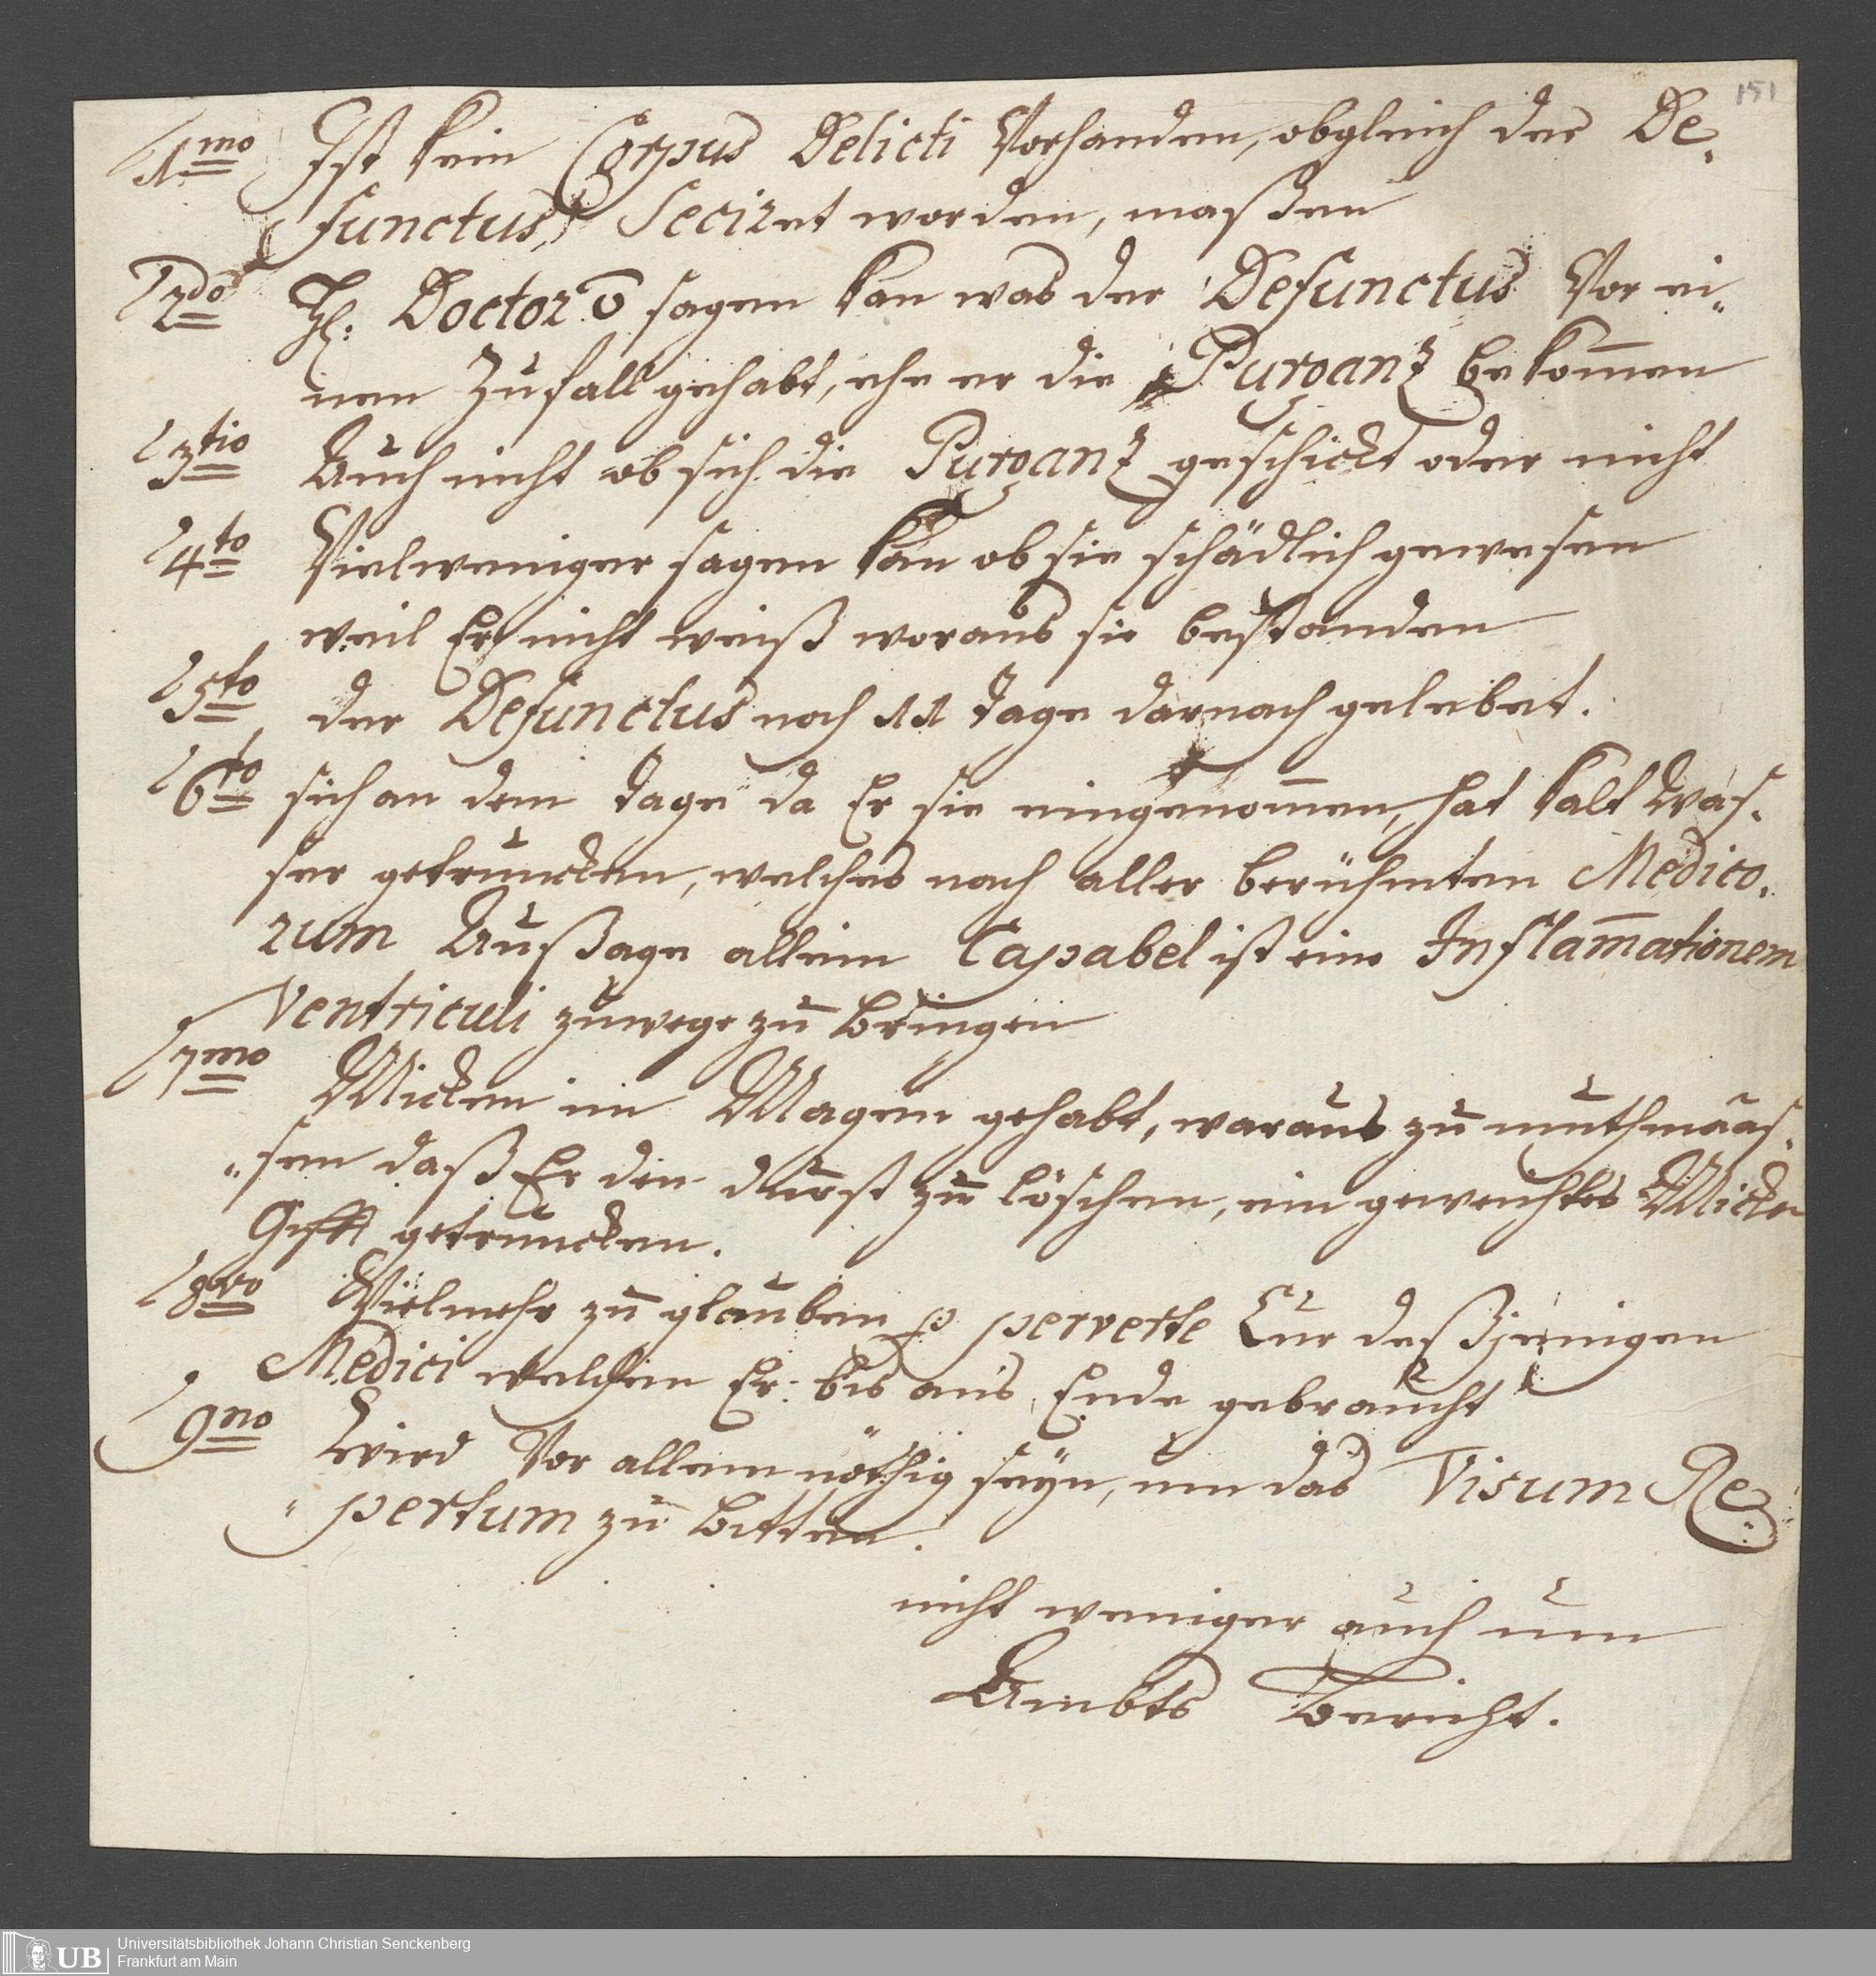 151
1mo Ist kein Corpus Delicti Vorhanden, obgleich der De-
functus, Seciret worden, maßen
2do H: Doctor ō sagen kan was der Defunctus Vor ei-
nen Zufall gehabt, ehe er die Purganz bekom̄en
3tio Auch nicht ob sich die Purganz geschickt oder nicht
4to Vielweniger sagen kan ob sie schädlich gewesen
weil Er nicht weiß woraus sie bestanden
5to der Defunctus noch 11 Tage darnach gelebet.
6to sich an dem Tage da Er sie eingenom̄en, hat kalt Was-
ser getruncken, welches nach aller berühmten Medico-
rum Außage allein Capabel ist eine Inflam̄ationem
Ventriculi zuwege zu bringen
7mo Micken im Magen gehabt, woraus zu muthmaas-
sen daß Er den durst zu löschen, ein geweichtes Micken
Gifft getruncken.
8vo Vielmehr zu glauben p perverte Cur deßjenigen
Medici welchen Er bis ans Ende gebraucht
9no Wird Vor allem nöthig seyn, um das Visum Re-
pertum zu bitten.
nicht weniger auch um
Ambts Bericht.
UB Universitätsbibliothek Johann Christian Senckenberg
Frankfurt am Main